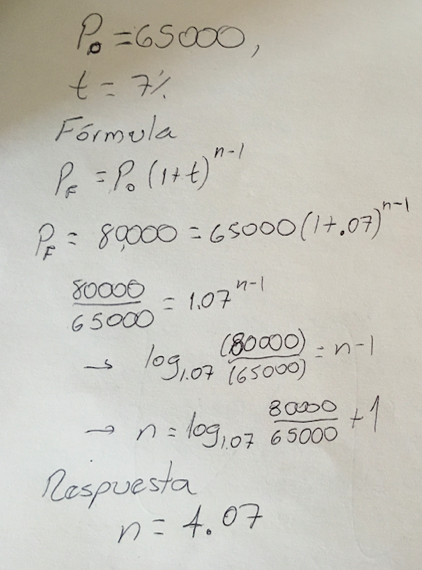 P₀ = 65000,
t = 7%
Fórmula
P_F = P₀ (1+t)^{n-1}
P_F = 80,000 = 65000 (1+.07)^{n-1}
80000/65000 = 1.07^{n-1}
→ log_{1.07} (80000)/(65000) = n-1
→ n = log_{1.07} 80000/65000 + 1
Respuesta
n = 4.07